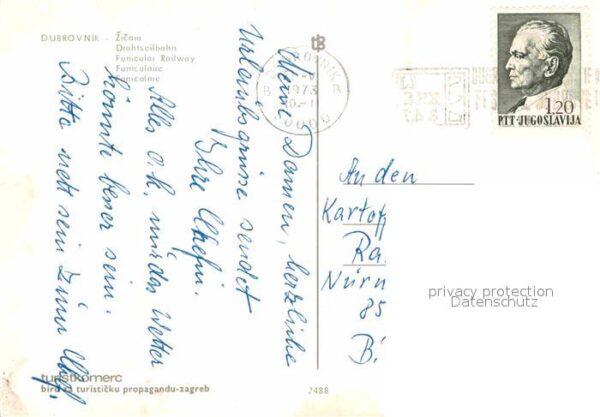 DUBROVNIK - Žičara
Drahtseilbahn
Funicular Railway
Funiculaire
Funicolare
Meine Damen, herzliche
Urlaubsgrüsse sendet
Ihre Chefin.
Alles o.k., nur das Wetter
könnte besser sein.
Bitte nett sein zum Chef!
turistkomerc
biro za turističku propagandu-zagreb
2488
1973
1.20
PTT-JUGOSLAVIJA
An den
Kartoff
Ra.
Nürn
85
B.
privacy protection
Datenschutz